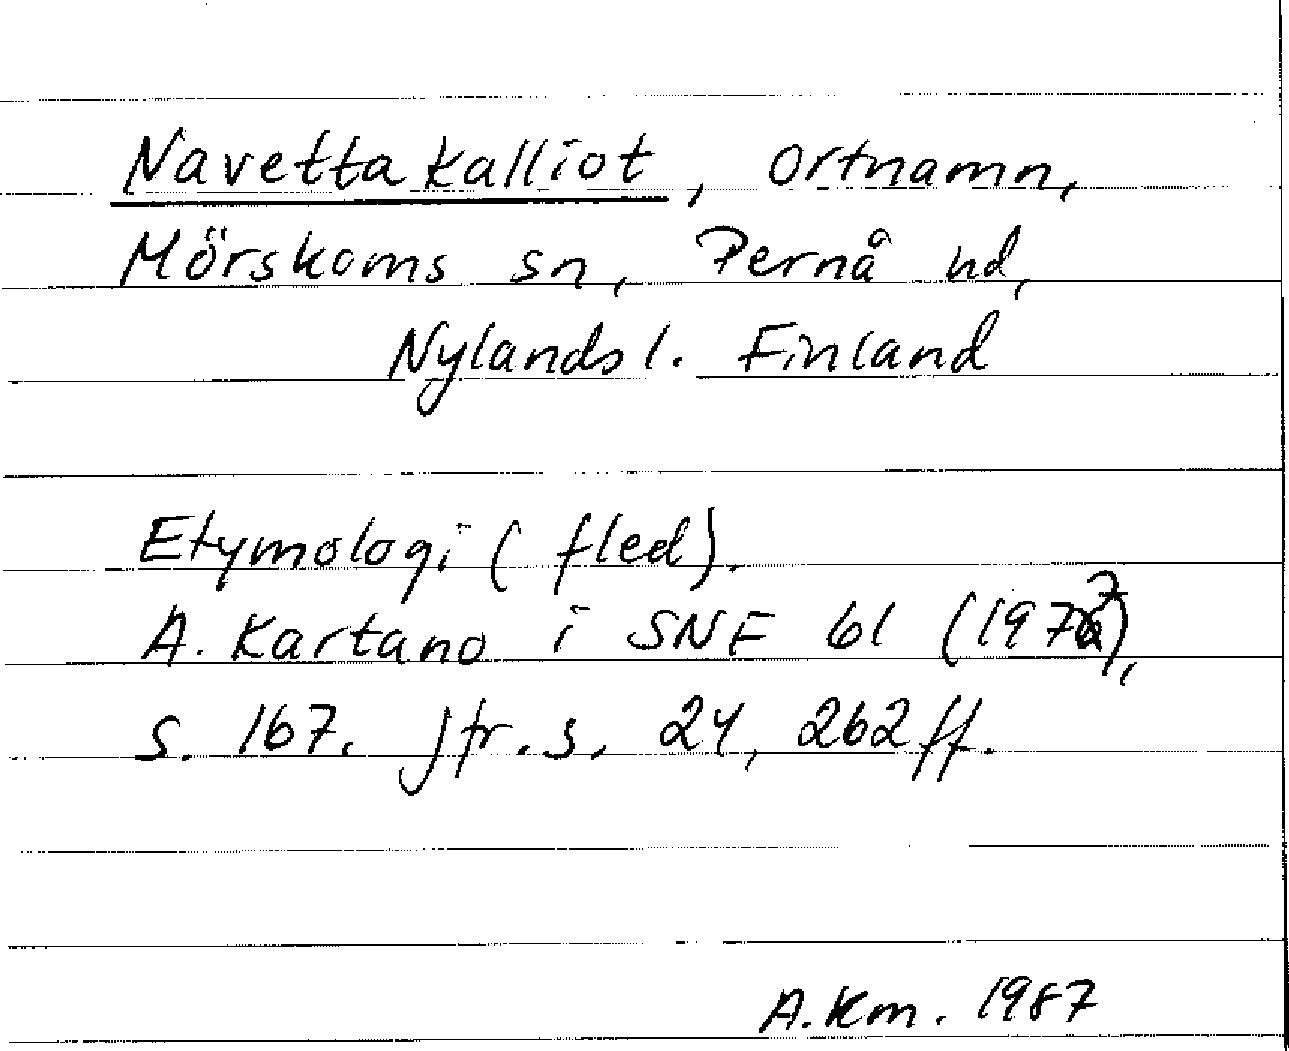 Navettakalliot, ortnamn,
Mörskoms sn, Pernå hd,
Nylands l. Finland
Etymologi (fled).
A. Kartano i SNF 61 (1977),
s. 167. Jfr. s. 24, 262 ff.
A.Km. 1987